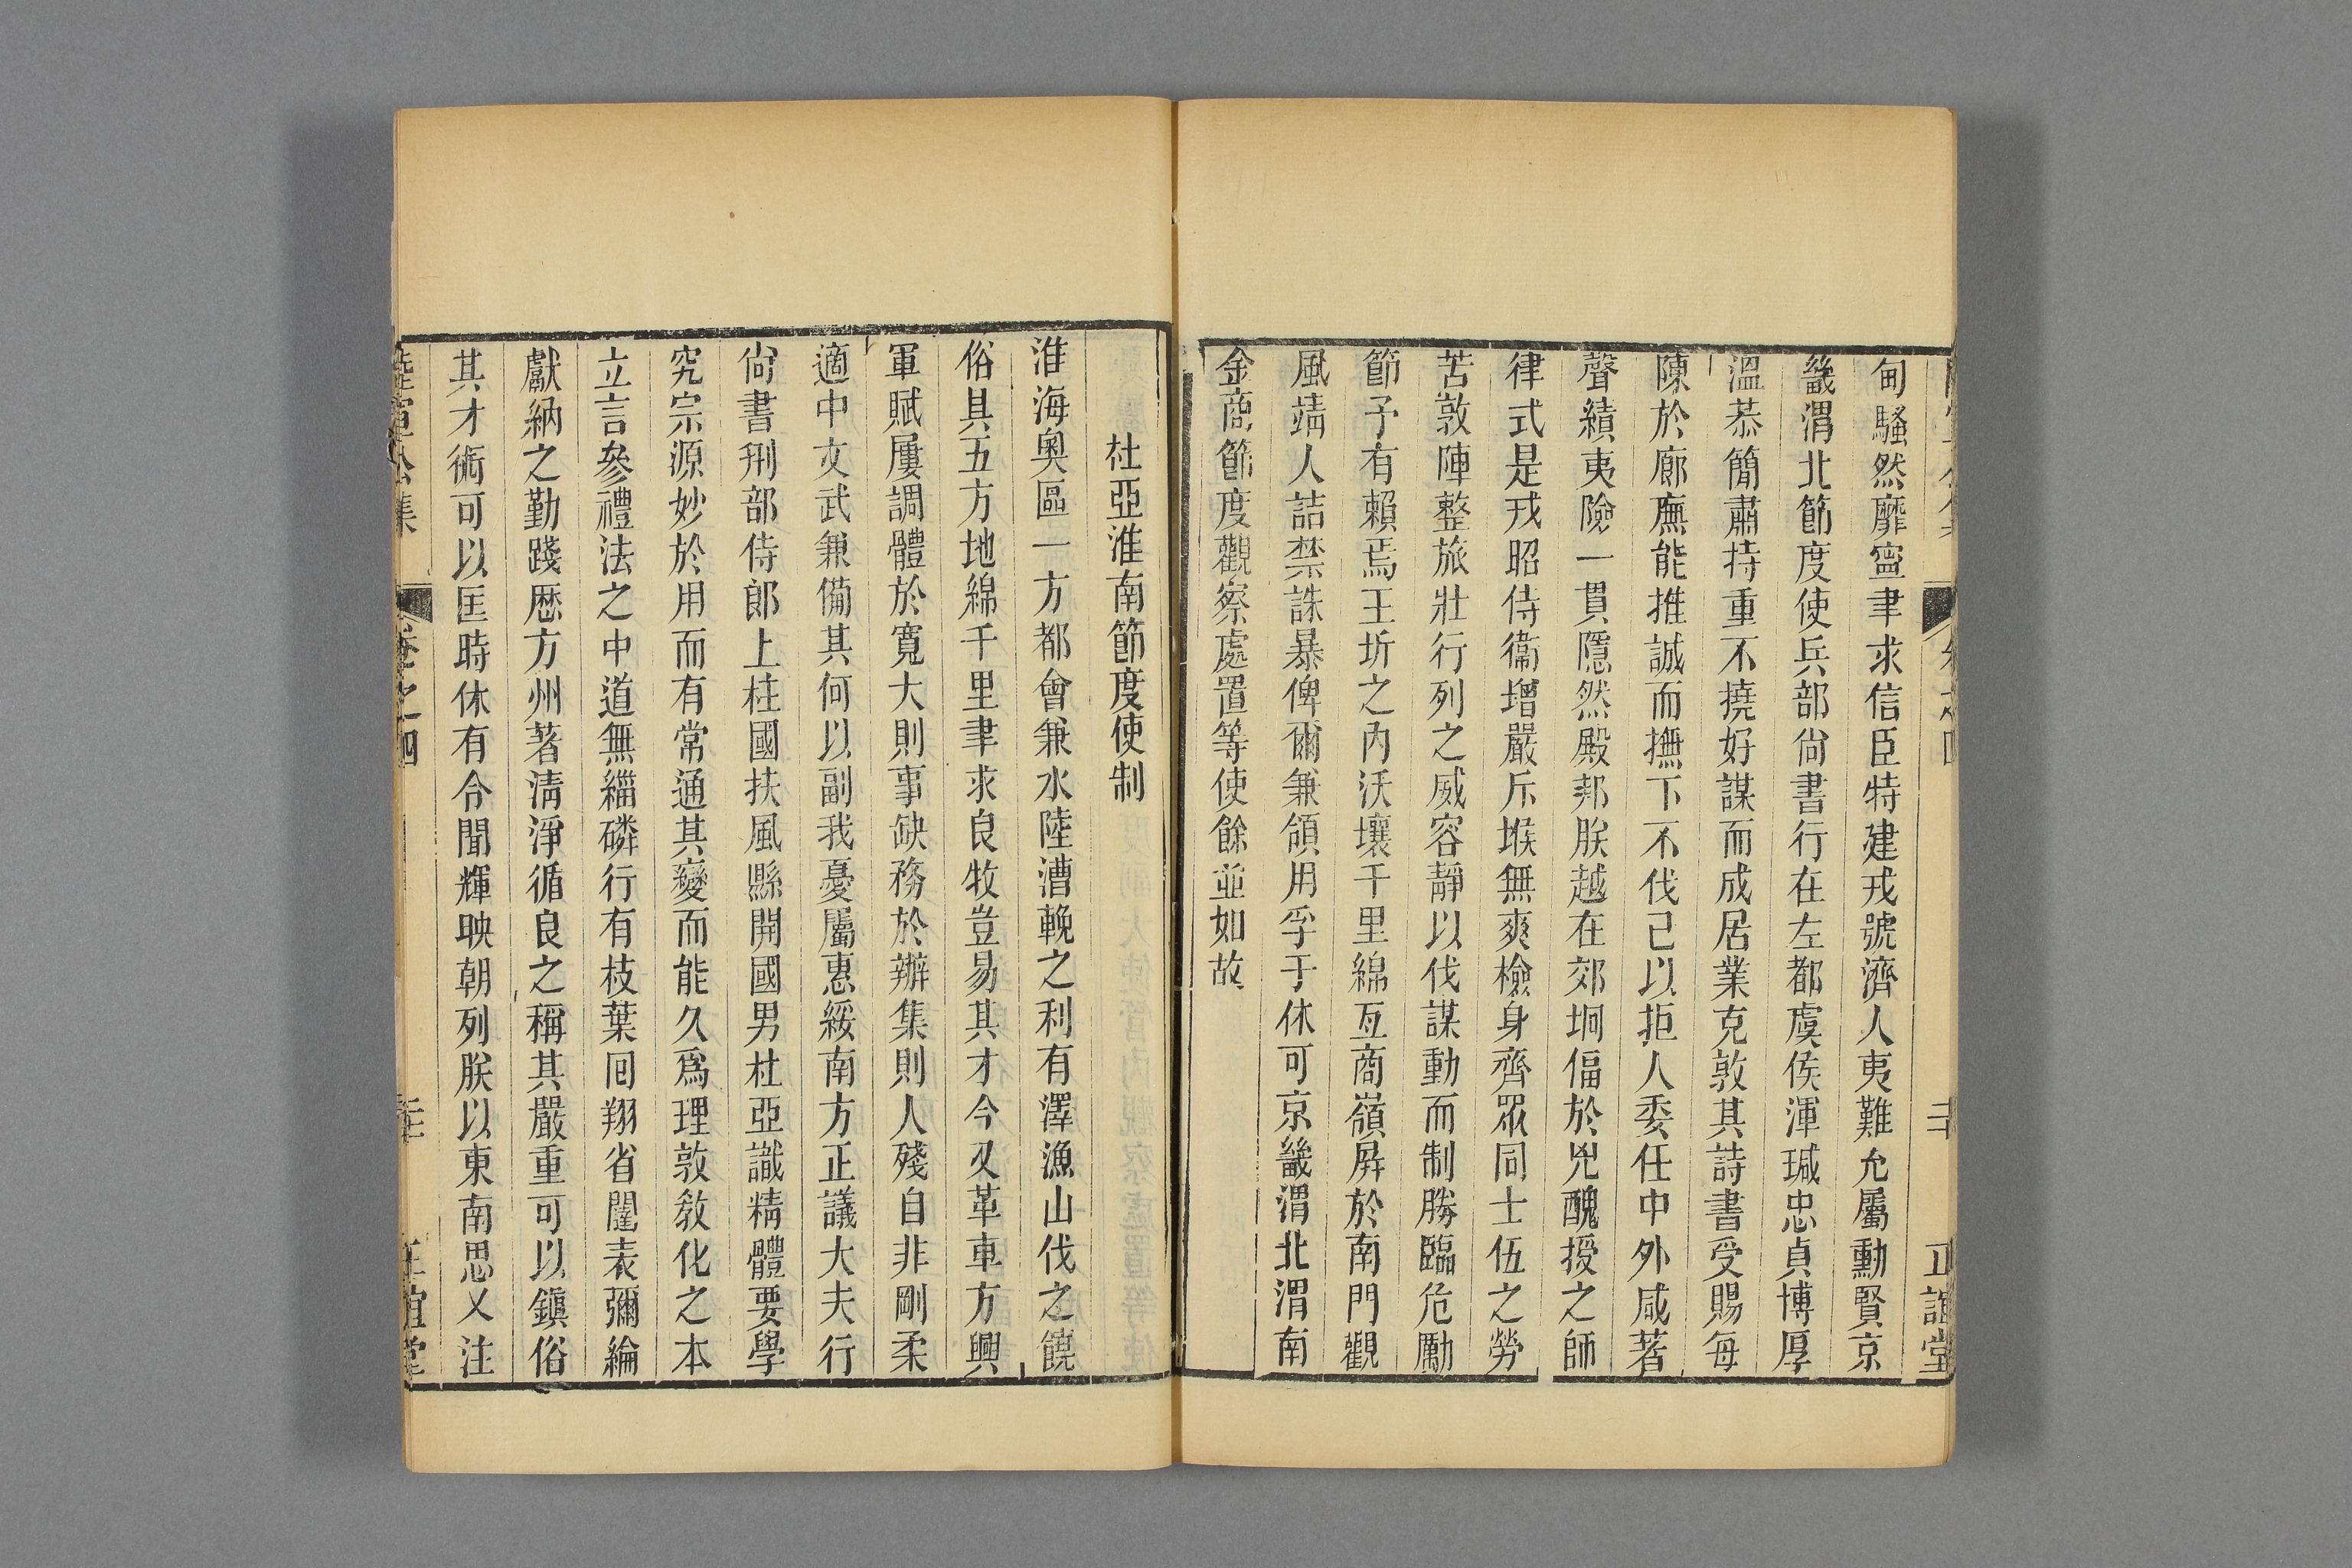 甸騷然靡寧聿求信臣特建戎號濟人夷難允屬勳賢京
畿渭北節度使兵部尚書行在左都虞侯渾瑊忠貞博厚
溫恭簡肅持重不撓好謀而成居業克敦其詩書受賜每
陳於廊廡能推誠而撫下不伐己以拒人委任中外咸著
聲績夷險一貫隱然殿邦朕越在郊坰偪於兇醜授之師
律式是戎昭侍衞增嚴斥堠無爽檢身齊眾同士伍之勞
苦敦陣整旅壯行列之威容靜以伐謀動而制勝臨危勵
節予有賴焉王圻之內沃壤千里綿亙商嶺屏於南門觀
風靖人詰禁誅暴俾爾兼領用孚于休可京畿渭北渭南
金商節度觀察處置等使餘並如故
杜亞淮南節度使制
淮海奧區一方都會兼水陸漕輓之利有澤漁山伐之饒
俗具五方地綿千里聿求良牧豈易其才今又革車方興
軍賦屢調體於寬大則事缺務於辦集則人殘自非剛柔
適中文武兼備其何以副我憂屬惠綏南方正議大夫行
尚書刑部侍郎上柱國扶風縣開國男杜亞識精體要學
究宗源妙於用而有常通其變而能久爲理敦教化之本
立言參禮法之中道無緇磷行有枝葉囘翔省闥表彌綸
獻納之勤踐歷方州著淸淨循良之稱其嚴重可以鎭俗
其才術可以匡時休有令聞輝映朝列朕以東南思乂注
陸宣公集 卷之四 正誼堂